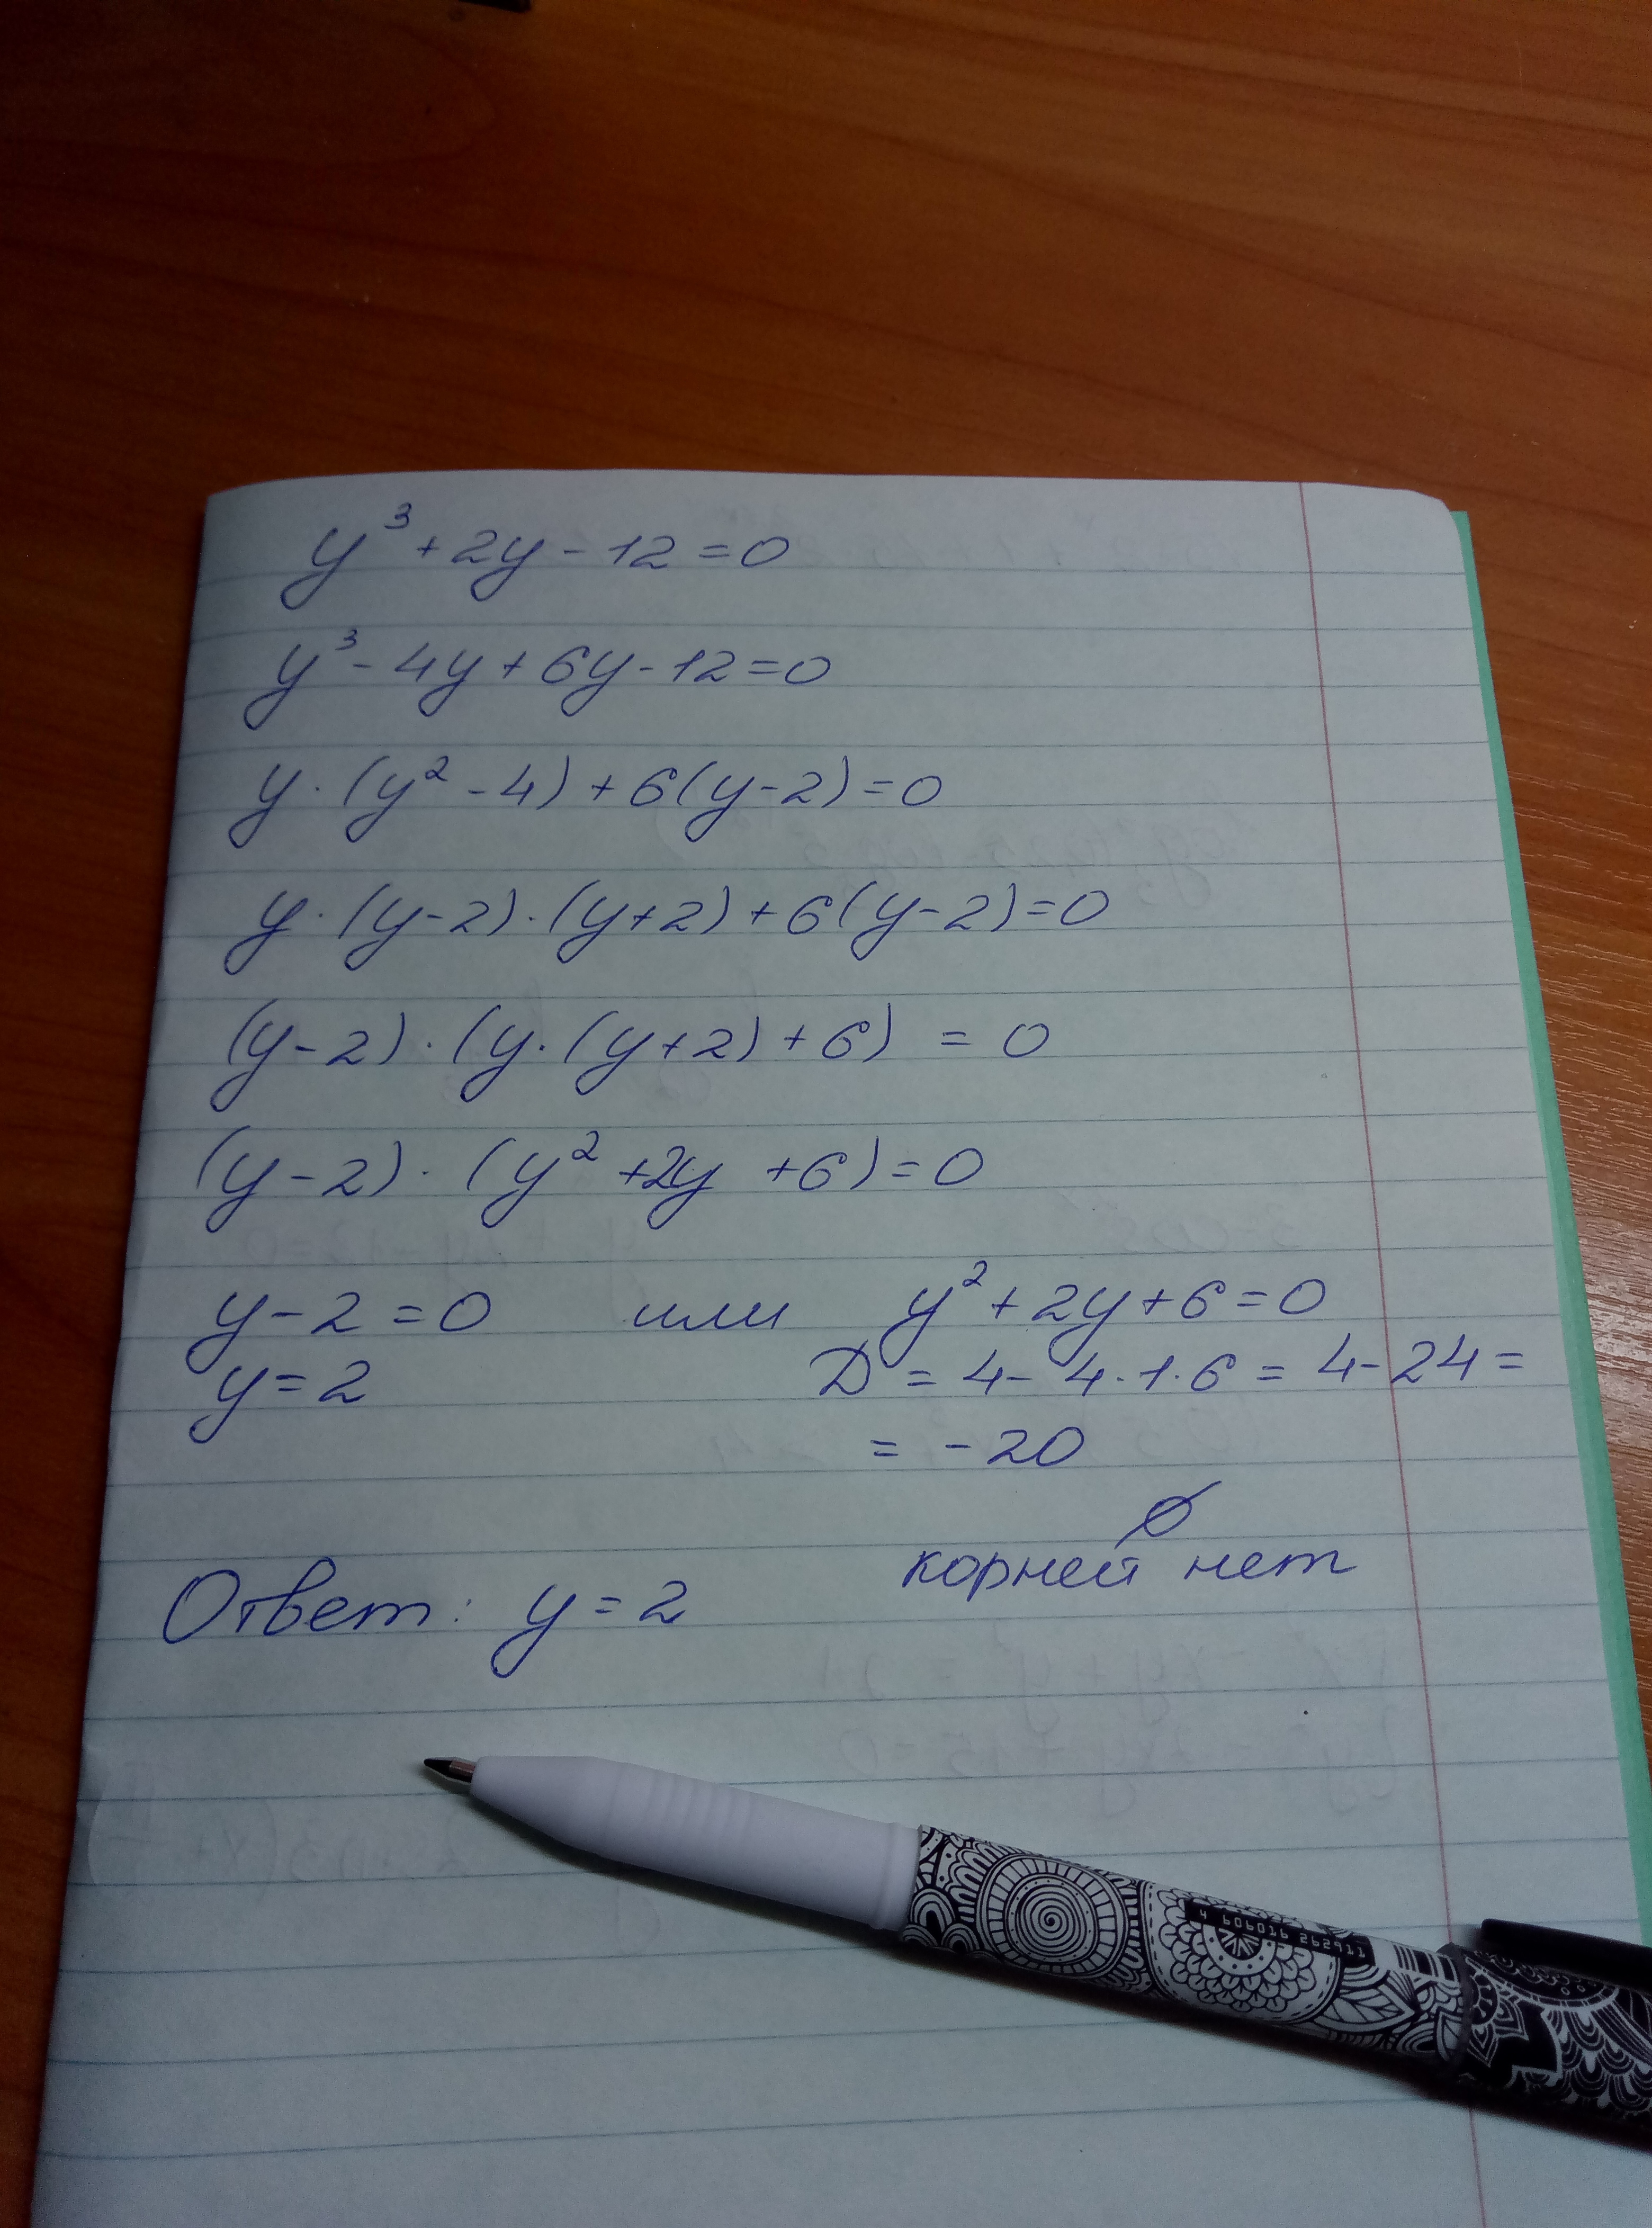 y³+2y-12=0
y³-4y+6y-12=0
y·(y²-4)+6(y-2)=0
y·(y-2)·(y+2)+6(y-2)=0
(y-2)·(y·(y+2)+6) = 0
(y-2)·(y²+2y +6)=0
y-2=0 или y²+2y+6=0
y=2 D = 4- 4·1·6 = 4-24=
= -20
∅
корней нет
Ответ: y=2
4 606016 262911